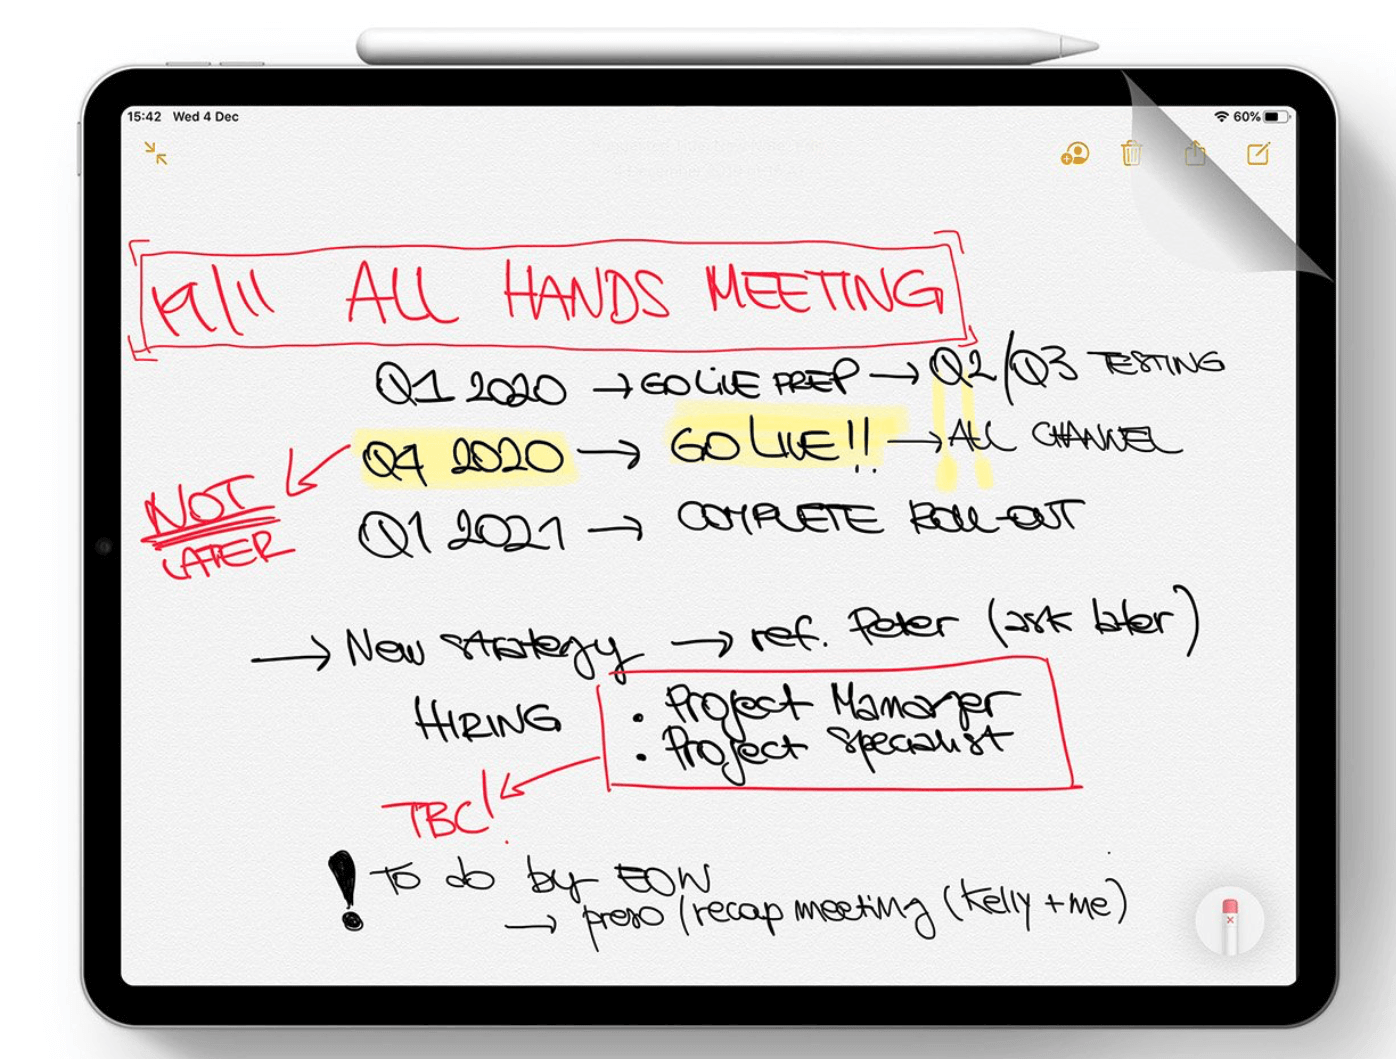 15:42 Wed 4 Dec
60%
19/11 ALL HANDS MEETING
Q1 2020 → GO LIVE PREP → Q2/Q3 TESTING
Q4 2020 → GO LIVE!! → ALL CHANNEL
NOT
LATER
Q1 2021 → COMPLETE ROLL-OUT
→ New strategy → ref. Peter (ask later)
HIRING
• Project Manager
• Project Specialist
TBC!
! To do by EOW
→ preso/recap meeting (Kelly + me)